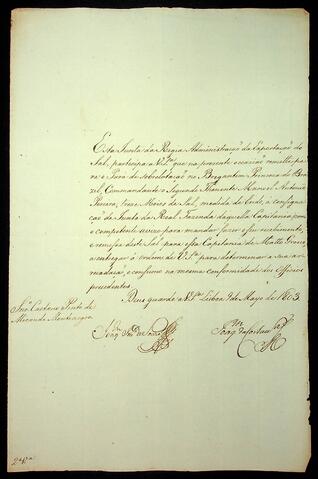 Esta Junta da Regia Administração da Exportação do
Sal, participa a V. S.ª que na presente occazião remette pa-
ra o Pará de sobrelotação no Bergantim Princeza do Bra-
zil, Commandante o Segundo Tenente Manoel Antonio
Pereira, Moios de Sal, medida de onde, a consigna-
ção da Junta da Real Fazenda daquella Capitania, com
o competente avizo para mandar fazer o seu recebimento,
e remessa deste Sal para essa Capitania de Matto Grosso
a entregar á ordem de V. S.ª para determinar a sua ar-
mazenação, e conformidade dos Officios
precedentes.
Deus guarde a V. S.ª Lisboa 9 de Mayo de 1803.
Snr. Caetano Pinto de
Miranda Montenegro
Joaq.m
Joaq.m
2ª Via